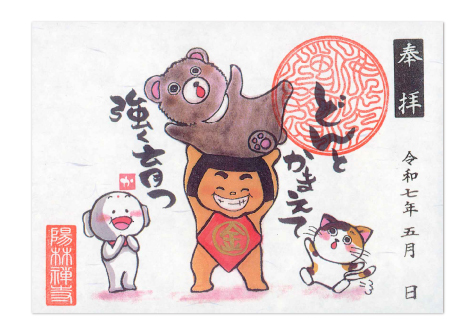 奉拝
令和七年五月 日
どんと
かまえて
強く育つ
か
金
陽林禅寺